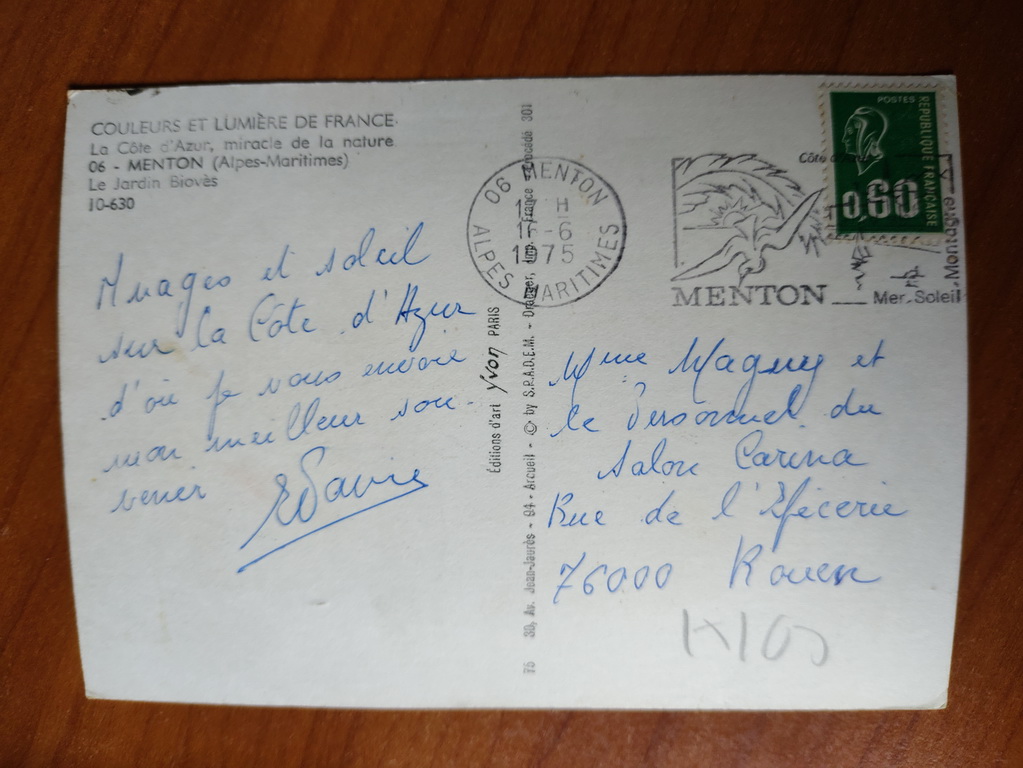 COULEURS ET LUMIÈRE DE FRANCE
La Côte d'Azur, miracle de la nature
06 - MENTON (Alpes-Maritimes)
Le Jardin Biovès
10-630
Nuages et soleil
sur la Côte d'Azur
d'où je vous envoie
mon meilleur sou-
venir
Éditions d'art Yvon PARIS
30, Av. Jean-Jaurès - 94 - Arcueil - © by S.P.A.D.E.M. -
Procédé 301
06 MENTON
H
-6
1975
ALPES MARITIMES
MENTON
Mer. Soleil
Montagne
POSTES
0,60
REPUBLIQUE FRANCAISE
Mme Magny et
le Personnel du
Salon Carina
Rue de l'Epicerie
76000 Rouen